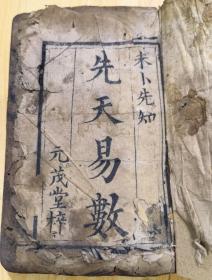 未卜先知
先天易數
元茂堂梓